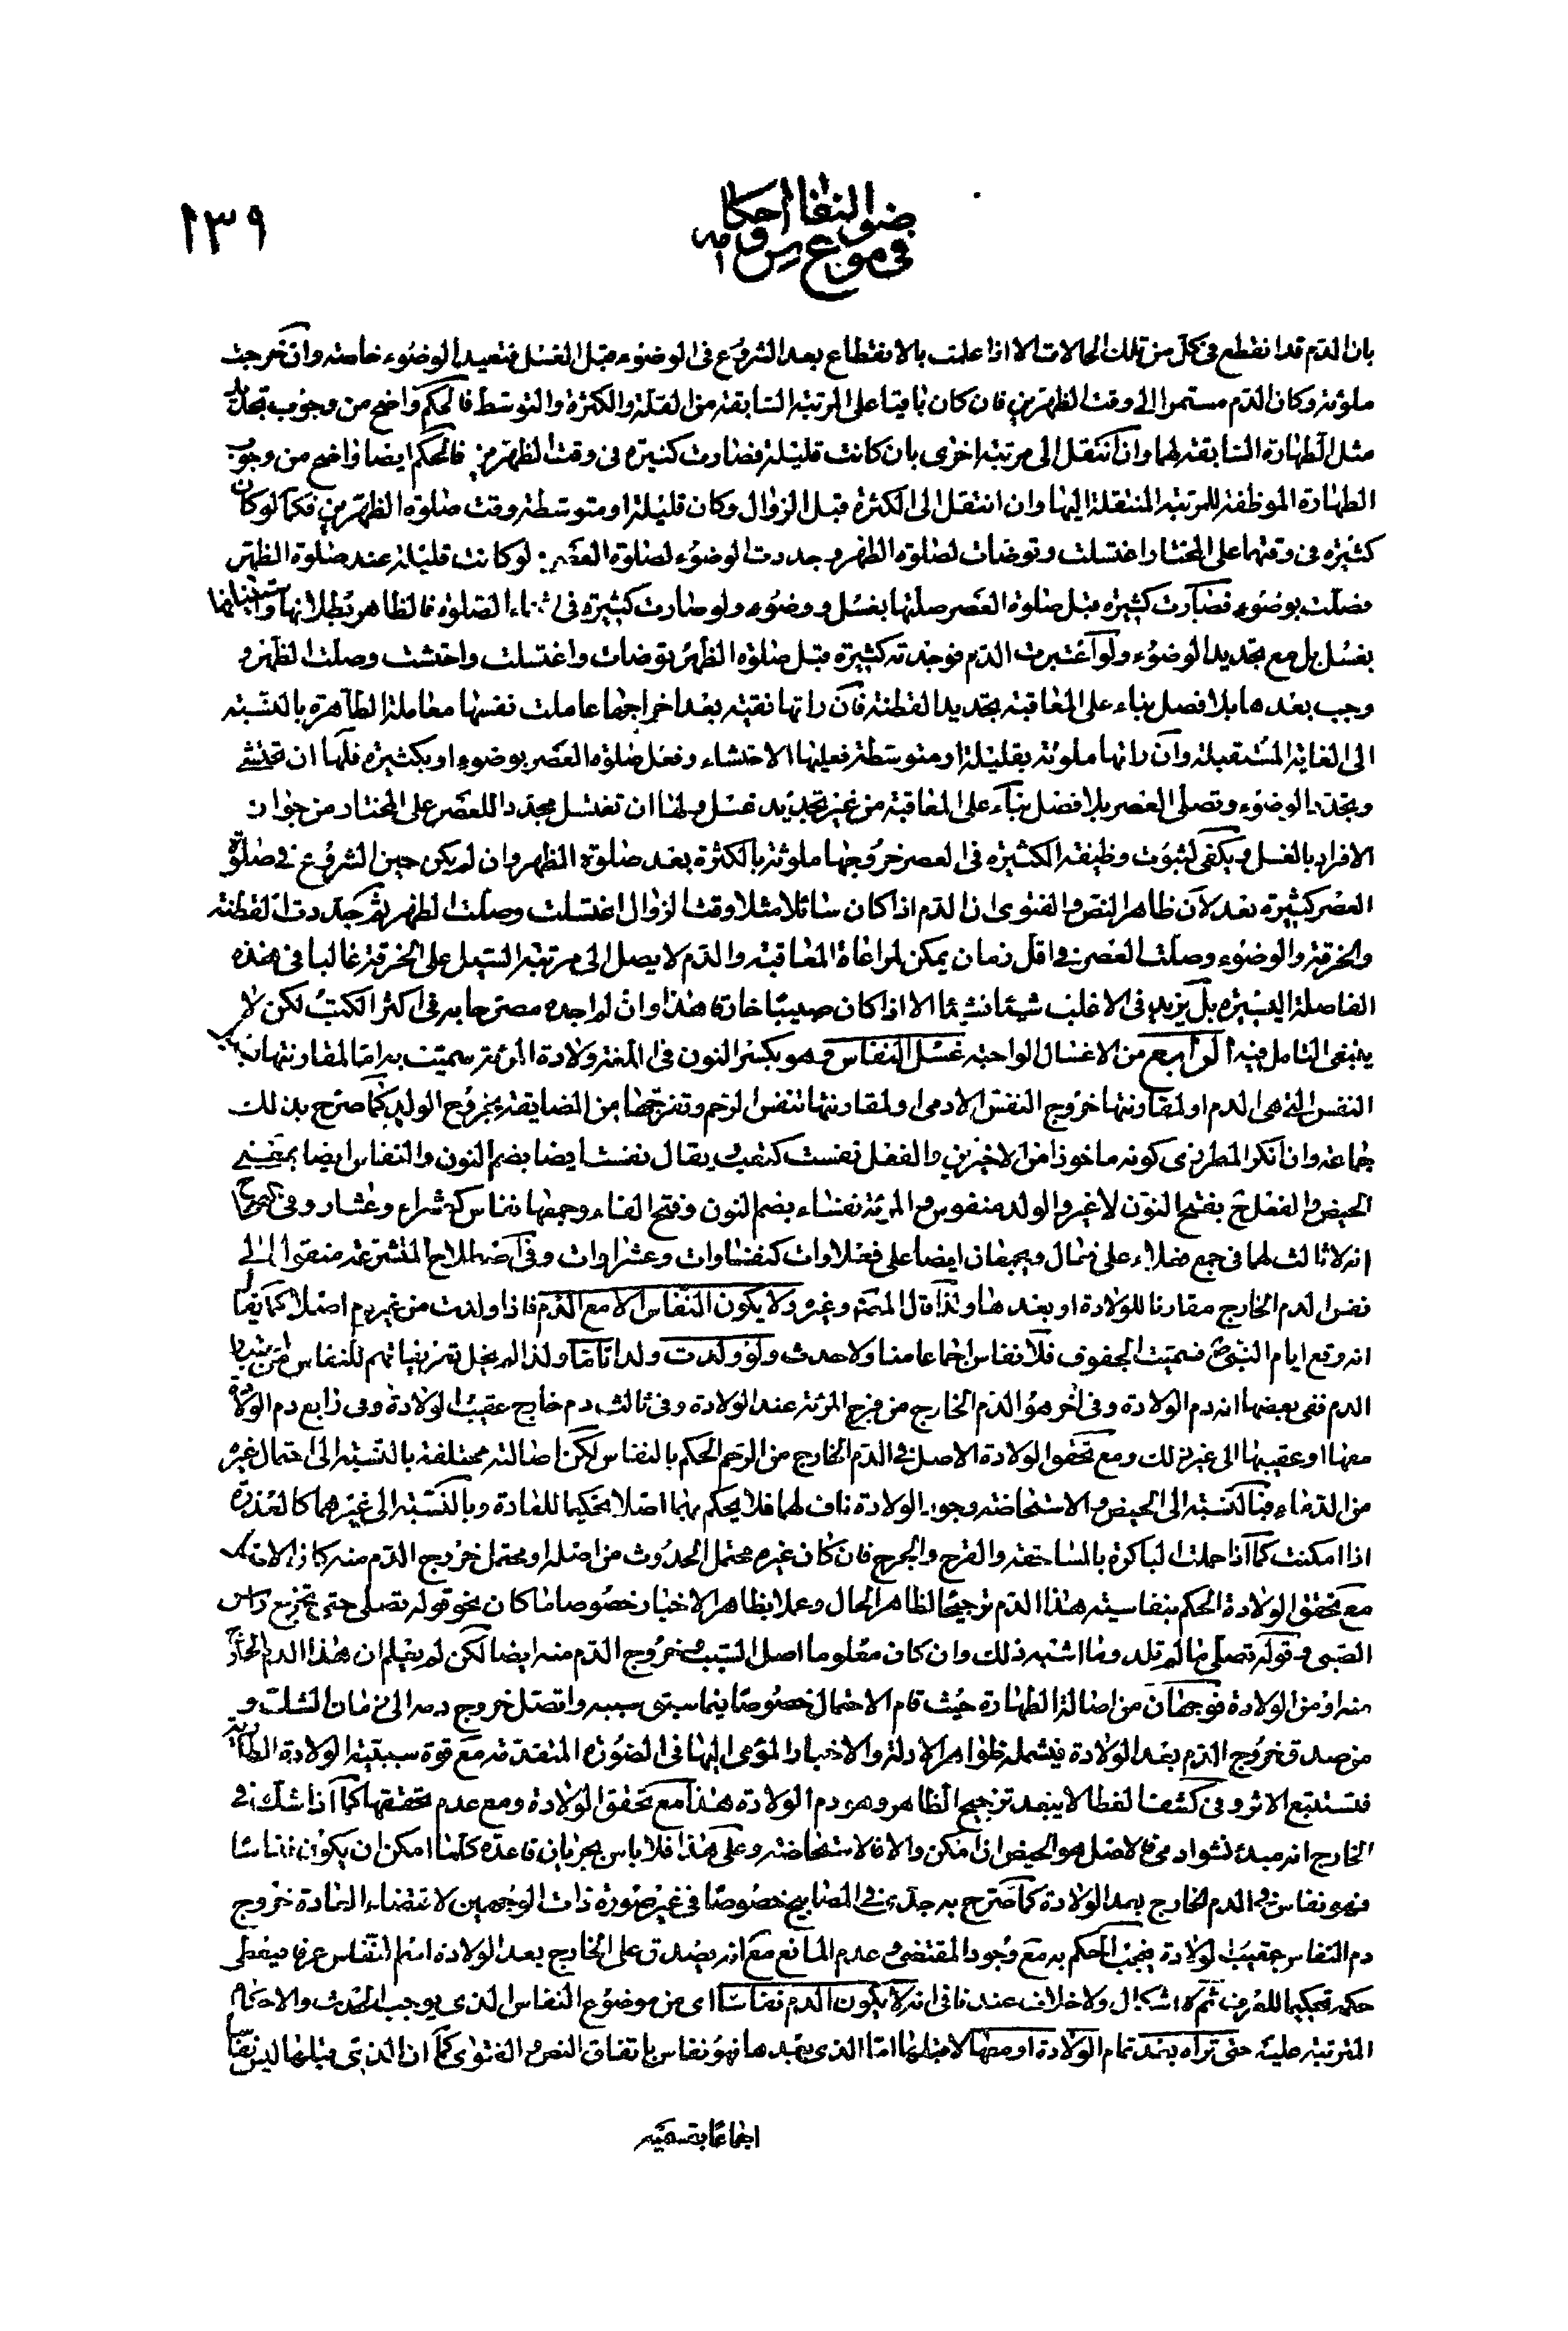 ١٣٩
في موضوع النفاس وأحكامه
بان الدم قد انقطع فى كل من تلك الحالات الا اذا علمت بالانقطاع بعد الشروع فى الوضوء قبل الغسل فتعيد الوضوء خاصة وان خرجت
ملوثة وكان الدم مستمرا الى وقت الظهرين فان كان باقيا على المرتبة السابقة من القلة والكثرة والتوسط فالحكم واضح من وجوب تجديد
مثل الطهارة السابقة لهما وان انتقل الى مرتبة اخرى بان كانت قليلة فصارت كثيرة فى وقت الظهرين فالحكم ايضا واضح من وجوب
الطهارة الموظفة للمرتبة المنتقلة اليها وان انتقل الى الكثرة قبل الزوال وكان قليلة او متوسطة وقت صلوة الظهرين فكما لو كان
كثيرة فى وقتهما على المختار اغتسلت وتوضات لصلوة الظهر وجددت الوضوء لصلوة العصر لو كانت قليلة عند صلوة الظهر
فصلت بوضوء فصارت كثيرة قبل صلوة العصر صلتها بغسل ووضوء ولو صارت كثيرة فى اثناء الصلوة فالظاهر بطلانها واستينافها
بغسل بل مع تجديد الوضوء ولو اعتبرت الدم فوجدته كثيرة قبل صلوة الظهر توضات واغتسلت واحتشت وصلت الظهر و
وجب بعدها بلا فصل بناء على المعاقبة تجديد القطنة فان راتها نقية بعد اخراجها عاملت نفسها معاملة الطاهرة بالنسبة
الى الغاية المستقبلة وان راتها ملوثة بقليلة او متوسطة فعليها الاحتشاء وفعل صلوة العصر بوضوء او بكثيرة فلها ان تحتشى
وتجدد الوضوء وتصلى العصر بلا فصل بناء على المعاقبة من غير تجديد غسل ولها ان تغتسل مجددا للعصر على المختار من جواز
الافراد بالغسل ويكفى لثبوت وظيفة الكثيرة فى العصر خروجها ملوثة بالكثرة بعد صلوة الظهر وان لم يكن حين الشروع فى صلوة
العصر كثيرة بعد لان ظاهر النص والفتوى ان الدم اذا كان سائلا مثلا وقت الزوال اغتسلت وصلت الظهر ثم جددت القطنة
والخرقة والوضوء وصلت العصر فى اقل زمان يمكن لمراعاة المعاقبة والدم لا يصل الى مرتبة السيل على الخرقة غالبا فى هذه
الفاصلة اليسيرة بل يزيد فى الاغلب شيئا فشيئا الا اذا كان صبيبا خارقا هذا وان لم اجده مصرحا به فى اكثر الكتب لكن لا
ينبغى التامل فيه الرابع من الاغسال الواجبة غسل النفاس وهو بكسر النون فى اللغة ولادة المرئة سميت به اما لمقارنتها
النفس التى هى الدم او لمقارنتها خروج النفس الادمى او لمقارنتها تنفس الرحم وتفرجها من المضايقة بخروج الولد كما صرح بذلك
جماعة وان انكر المطرزى كونه ماخوذا من الاخيرين والفعل نفست كتعب يقال نفست ايضا بضم النون والنفاس ايضا بمعنى
الحيض والفعل ح بفتح النون لا غير والولد منفوس والمرئة نفساء بضم النون وفتح الفاء وجمعها نفاس كعشراء وعشار وفى
انه لا ثالث لهما فى جمع فعلاء على فعال ويجمعان ايضا على فعلاوات كنفساوات وعشراوات وفى اصطلاح المتشرعة منقول الى
نفس الدم الخارج مقارنا للولادة او بعدها ولذا قال المصنف وغيره ولا يكون النفاس الا مع الدم فاذا ولدت من غير دم اصلا كما يقال
انه وقع ايام النبى ص فسميت الجفوف فلا نفاس اجماعا منا ولا حدث ولو ولدت ولدا تاما ولذا لم يخل تعريفاتهم للنفاس من
الدم ففى بعضها انه دم الولادة وفى اخر هو الدم الخارج من فرج المرئة عند الولادة وفى ثالث دم خارج عقيب الولادة وفى رابع دم الولادة
معها او عقيبها الى غير ذلك ومع تحقق الولادة الاصل فى الدم الخارج من الرحم الحكم بالنفاس لكن اصالته مختلفة بالنسبة الى احتمال غيره
من الدماء فبالنسبة الى الحيض والاستحاضة وجود الولادة ناف لهما فلا يحكم بهما اصلا تحكيما للعادة وبالنسبة الى غيرهما كالعذرة
اذا امكنت كما اذا حملت الباكرة بالمساحقة والقرح والجرح فان كان غيره محتمل الحدوث من اصله او محتمل خروج الدم منه
مع تحقق الولادة الحكم بنفاسية هذا الدم ترجيحا لظاهر الحال وعملا بظاهر الاخبار خصوصا ما كان نحو قوله تصلى حتى تخرج راس
الصبى وقوله تصلى ما لم تلد وما اشبه ذلك وان كان معلوما اصل السبب وخروج الدم منه ايضا لكن لم يعلم ان هذا الدم الخارج
منه او من الولادة فوجهان من اصالة الطهارة حيث قام الاحتمال خصوصا فيما سبق سببه واتصل خروج دمه الى زمان الشك و
من صدق خروج الدم بعد الولادة فيشمله ظواهر الادلة والاخبار المومى اليها فى الصورة المتقدمة مع قوة سببية الولادة
فتستتبع الاثر وفى كشف الغطا لا يبعد ترجيح الظاهر وهو دم الولادة هذا مع تحقق الولادة ومع عدم تحققها كما اذا شك فى
الخارج انه مبدء نشو ادمى فالاصل هو الحيض ان امكن والا فالاستحاضة وعلى هذا فلا باس بجريان قاعدة كلما امكن ان يكون نفاسا
فهو نفاس فى الدم الخارج بعد الولادة كما صرح به جدى فى المصابيح خصوصا فى غير صورة ذات الوجهين لاقتضاء العادة خروج
دم النفاس عقيب الولادة فيجب الحكم به مع وجود المقتضى وعدم المانع مع انه يصدق على الخارج بعد الولادة اسم النفاس عرفا فيعطى
حكمه تحكيما للعرف ثم لا اشكال ولا خلاف عندنا فى انه لا يكون الدم نفاسا اى من موضوع النفاس الذى يوجب الحدث والاحكام
المترتبة عليه حتى تراه بعد تمام الولادة او معها لا قبلها اما الذى بعدها فهو نفاس باتفاق النص والفتوى كما ان الذى قبلها ليس نفاسا
اجماعا بقسميه